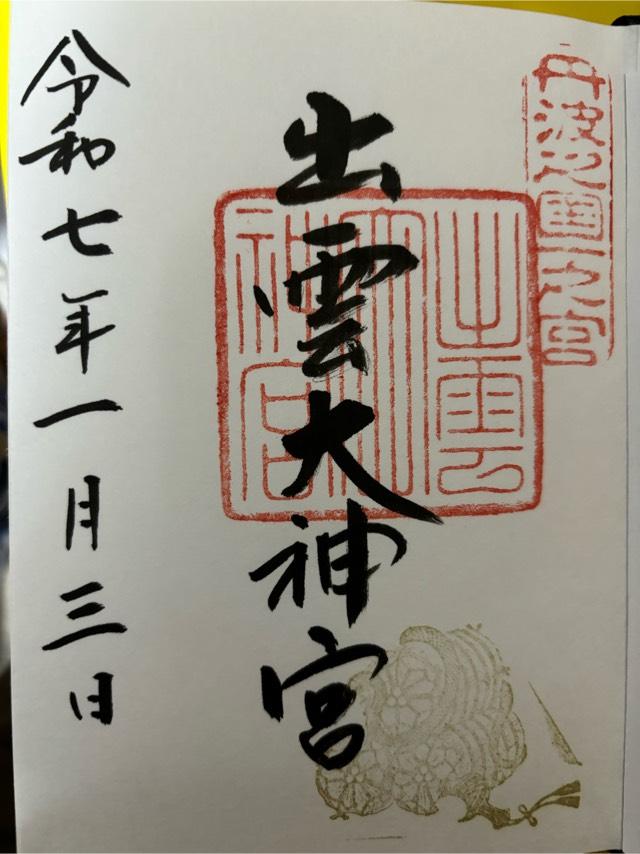 丹波之國一之宮
出雲大神宮
出雲大神宮
令和七年一月三日